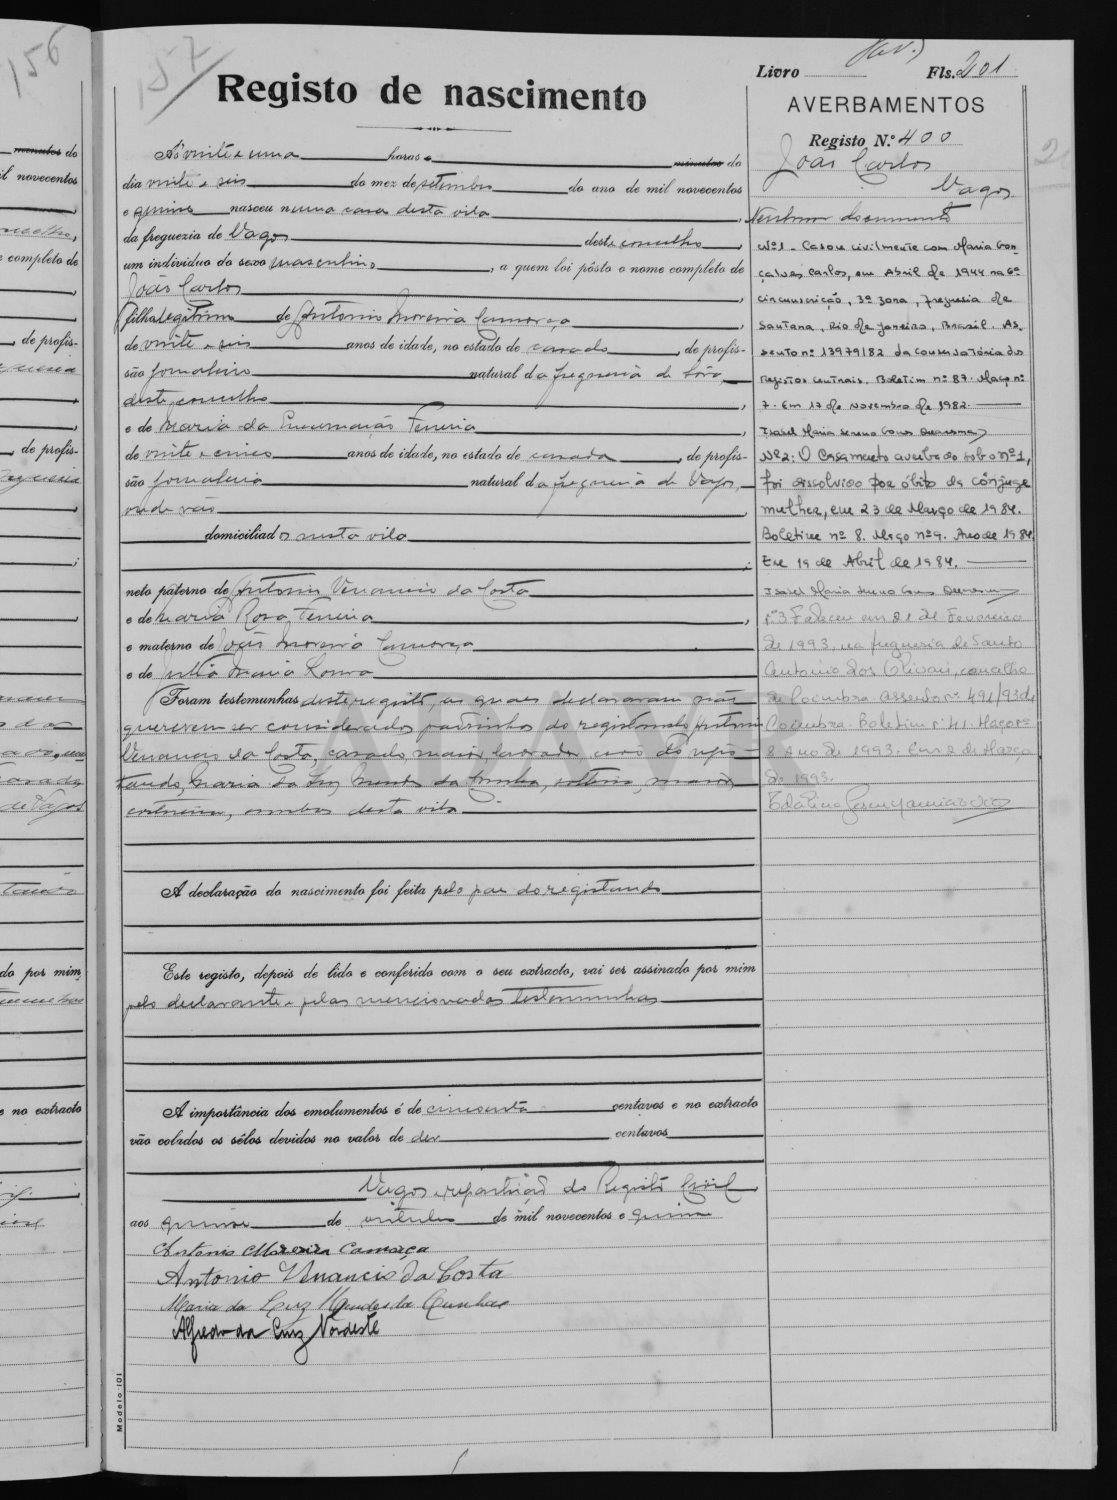 156
157
Registo de nascimento
Ás vinte e uma horas e minutos do
dia vinte e seis do mez de setembro do ano de mil novecentos
e quinze nasceu numa casa desta vila,
da freguezia de Vagos deste concelho,
um individuo do sexo masculino, a quem foi pôsto o nome completo de
João Carlos,
filho legitimo de Antonio Moreira Camarça,
de vinte e seis anos de idade, no estado de casado, de profis-
são jornaleiro natural da freguesia de Sôza
deste concelho,
e de Maria da Encarnação Ferreira,
de vinte e cinco anos de idade, no estado de casada, de profis-
são jornaleira natural da freguesia de Vagos,
onde são,
domiciliados nesta vila
;
neto paterno de Antonio Venancio da Costa
e de Maria Rosa Ferreira,
e materno de João Moreira Camarça
e de Julia Maria
Foram testemunhas deste registo, as quaes declararam não
quererem ser considerados padrinhos do registando, Antonio
Venancio da Costa, casado, maior, lavrador, avô do regis-
tando, Maria da Luz Mendes da Cunha, solteira, maior,
costureira, ambos desta vila
A declaração do nascimento foi feita pelo pae do registando
Este registo, depois de lido e conferido com o seu extracto, vai ser assinado por mim
pelo declarante e pelas mencionadas testemunhas
A importância dos emolumentos é de cincoenta centavos e no extracto
vão colados os sêlos devidos no valor de dez centavos
Vagos e repartição do Registo Civil
aos quinze de outubro de mil novecentos e quinze
Antonio Moreira Camarça
Antonio Venancio da Costa
Maria da Luz Mendes da Cunha
Alfredo da Cruz Nordeste
Modelo 101
Livro Fls. 201
AVERBAMENTOS
Registo N.º 400
João Carlos
Vagos
Nenhum documento
Nº1 - Casou civilmente com Maria Gon-
çalves Carlos, em Abril de 1944 na 6ª
circunscrição, 3ª zona, freguesia de
Santana, Rio de Janeiro, Brasil. As-
sento nº 13979/82 da Conservatória dos
Registos Centrais. Boletim nº 87. Maço nº
7. Em 17 de Novembro de 1982.
Isabel Maria
Nº2: O Casamento averbado sob o nº1,
foi dissolvido por óbito da cônjuge
mulher, em 23 de Março de 1984.
Boletim nº 8. Maço nº9. Ano de 1984.
Em 19 de Abril de 1984.
Isabel Maria
nº3 Faleceu em 21 de Fevereiro
de 1993, na freguesia de Santo
António dos Olivais, concelho
de Coimbra. Assento nº 491/93 de
Coimbra. Boletim nº 41. Maço nº
8. Ano de 1993. Em 2 de Março
de 1993.